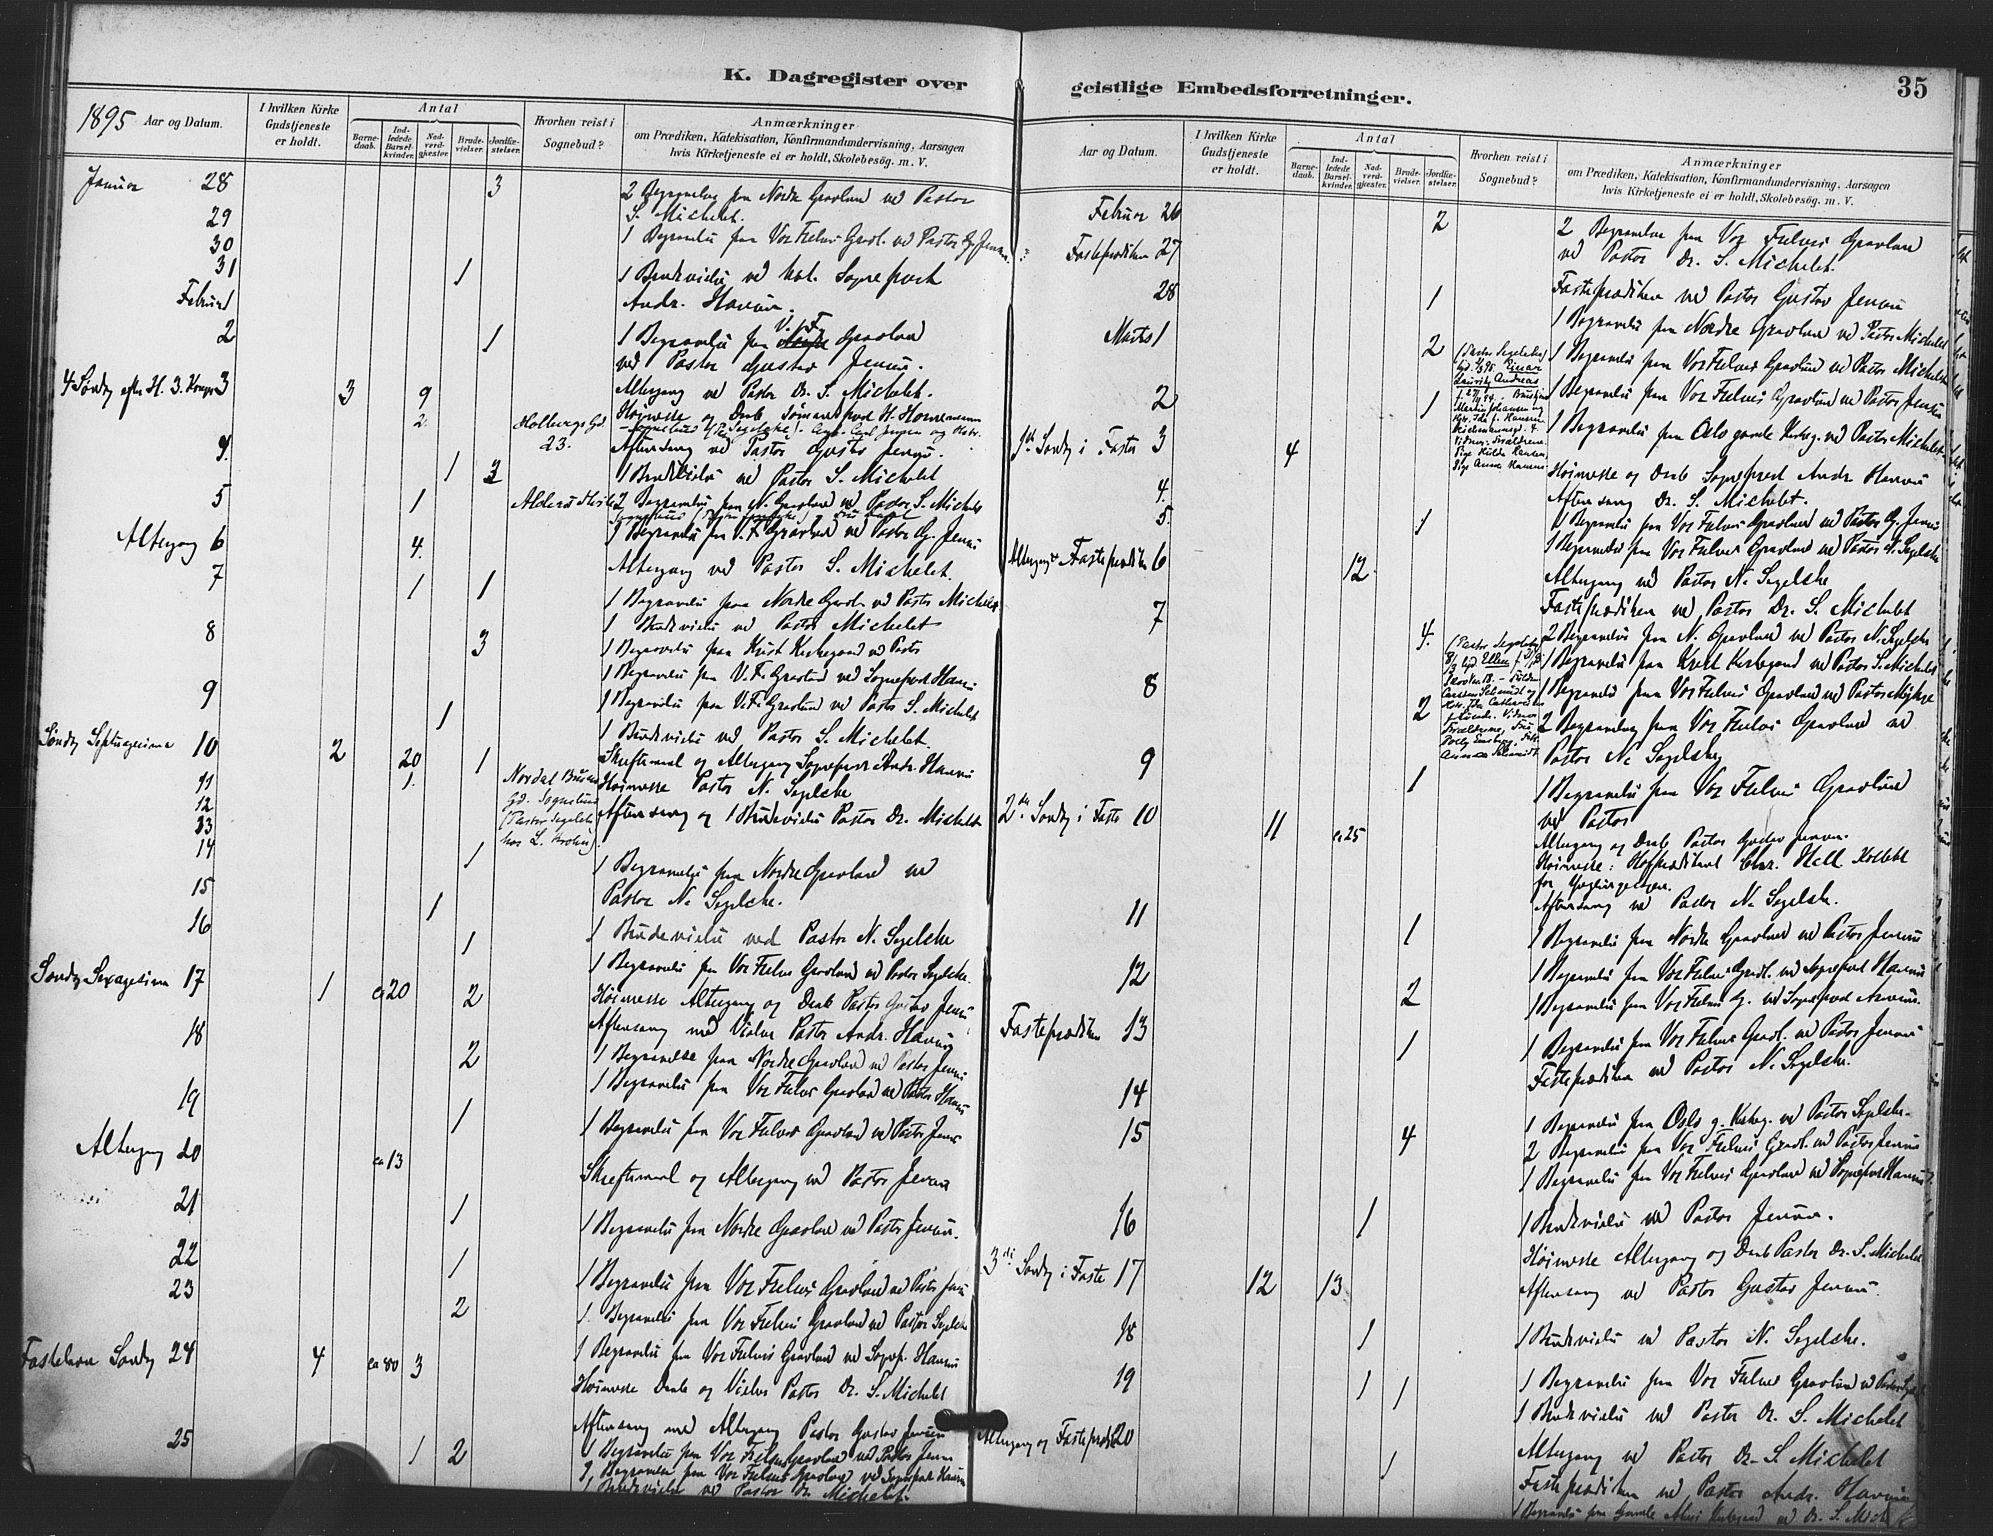 K. Dagregister over
geistlige Embedsforretninger.
35
1895 Aar og Datum.
I hvilken Kirke Gudstjeneste er holdt.
Antal
Barne-daab.
Ind-ledede Barsel-kvinder.
Nad-verd-gjester.
Brude-vielser.
Jordfæ-stelser.
Hvorhen reist i Sognebud?
Anmærkninger
om Prædiken, Katekisation, Konfirmandundervisning, Aarsagen
hvis Kirketjeneste ei er holdt, Skolebesøg. m. V.
Januar 28 3 2 Begravelser fra Nordre Gravlund ved Pastor
S. Michelet.
29 1 Begravelse fra Vor Frelsers Gravl. ved Pastor G. Jensen
30
31 1 1 Brudevielse ved kst. Sogneprest
Februar 1 Andr. Hansen.
2 1 1 Begravelse fra V. F. Gravlund
ved Pastor Gustav Jensen.
4 Søndag efter H. 3. Konger 3 3 9 Altergang ved Pastor Dr. S. Michelet.
2 Holbergs Gd. 23.
Høimesse og Daab
Aftensang ved Pastor Gustav Jensen.
4. 1 3 1 Brudevielse ved Pastor S. Michelet
5 1 2 Begravelser fra N. Gravlund ved Pastor S. Michelet
1 Begravelse fra V. F. Gravlund ved Pastor G. Jensen
Altergang 6 4. Altergang ved Pastor S. Michelet.
7 1 1 1 Begravelse fra Nordre Gravl. ved Pastor Michelet
1 Brudevielse ved Pastor Michelet
8 3 1 Begravelse fra Krist Kirkegaard ved Pastor
1 Begravelse fra V. F. Gravlund ved Sogneprest Hansen
9 1 1 Begravelse fra V. F. Gravlund ved Pastor S. Michelet
1 Brudevielse ved Pastor S. Michelet.
Søndag Septuagesima 10 2 20 1 Skriftemaal og Altergang Sogneprest Andr. Hansen
11 1. Høimesse Pastor N. Segelcke
12 Aftensang og 1 Brudevielse Pastor Dr. Michelet
13
14 1 1 Begravelse fra Nordre Gravlund ved
Pastor N. Segelcke.
15 1 1 Brudevielse ved Pastor N. Segelcke
16 1 1 Begravelse fra Vor Frelsers Gravlund ved Pastor Segelcke.
Søndag Sexagesima 17 1 ca 20 2 Høimesse Altergang og Daab Pastor Gustav Jensen
Aftensang med Vielser Pastor Andr. Hansen
18 2 1 Begravelse fra Nordre Gravlund ved Pastor Jensen
1 Begravelse fra Vor Frelsers Gravlund ved Pastor Hansen
19 1 1 Begravelse fra Vor Frelsers Gravlund ved Pastor Jensen
Altergang 20 ca 13 Skriftemaal og Altergang ved Pastor Jensen
21 1 1 Begravelse fra Nordre Gravlund ved Pastor Jensen.
22 1 1 Begravelse fra Vor Frelsers Gravlund ved Pastor Jensen
23 2 1 Begravelse fra Vor Frelsers Gravlund ved Pastor Segelcke
1 Begravelse fra Vor Frelsers Gravlund ved Sognep. Hansen
Fastelavn Søndag 24 4 ca 80 3 Høimesse Daab og Vielser Pastor Dr. S. Michelet
Aftensang med Altergang Pastor Gustav Jensen
25 1 2 1 Begravelse fra Vor Frelsers Gravlund ved Pastor Jensen
1 Begravelse fra Vor Frelsers Gravlund ved Sogneprest Hansen
1 Brudevielse ved Pastor Dr. Michelet.
Aar og Datum.
I hvilken Kirke Gudstjeneste er holdt.
Antal
Barne-daab.
Ind-ledede Barsel-kvinder.
Nad-verd-gjester.
Brude-vielser.
Jordfæ-stelser.
Hvorhen reist i Sognebud?
Anmærkninger
om Prædiken, Katekisation, Konfirmandundervisning, Aarsagen
hvis Kirketjeneste ei er holdt, Skolebesøg. m. V.
Februar 26 2 2 Begravelser fra Vor Frelsers Gravlund
ved Pastor Dr. S. Michelet.
Fasteprædiken 27 Fasteprædiken ved Pastor Gustav Jensen
28 1 1 Begravelse fra Nordre Gravlund ved Pastor Michelet
Marts 1 2 1 Begravelse fra Vor Frelsers Gravlund ved Pastor Michelet
1 Begravelse fra Vor Frelsers Gravlund ved Pastor Jensen
2 1 1 Begravelse fra Oslo gamle Kirkeg. ved Pastor Michelet
1ste Søndag i Faste 3 4 Høimesse og Daab Sogneprest Andr Hansen
Aftensang Dr. S. Michelet.
4. 1 Begravelse fra Vor Frelsers Gravlund ved Pastor G. Jensen
5. 1 1 Begravelse fra Vor Frelsers Gravlund ved Pastor N. Segelcke
Altergang & Fasteprædiken 6 12 Altergang ved Pastor N. Segelcke
Fasteprædiken ved Pastor Dr. S. Michelet
7 4. 2 Begravelser fra N. Gravlund ved Pastor N. Segelcke
1 Begravelse fra Krist Kirkegaard ved Pastor S. Michelet
8 2 1 Begravelse fra Vor Frelsers Gravlund ved Pastor
2 Begravelser fra Vor Frelsers Gravlund ved
Pastor N. Segelcke
9 1 1 Begravelse fra Vor Frelsers Gravlund
ved Pastor
2den Søndag i Faste 10 11 ca 25 Altergang og Daab Pastor Gustav Jensen.
Høimesse: Hofprædikant Chr. Hall
Aftensang ved Pastor N. Segelcke.
11 1 1 Begravelse fra Nordre Gravlund ved Pastor Jensen
12 2 1 Begravelse fra Vor Frelsers Gravl. ved Sogneprest Hansen
1 Begravelse fra Vor Frelsers G. ved Sogneprest Hansen.
Fasteprædiken 13 1 1 Begravelse fra Vor Frelsers Gravl. ved Pastor Jensen
Fasteprædiken ved Pastor N. Segelcke.
14 1 Begravelse fra Oslo g. Kirkeg. ved Pastor Segelcke.
15 4 2 Begravelser fra Vor Frelsers Gravl. ved Pastor Jensen
1 Begravelse fra Vor Frelsers Gravlund ved Sogneprest Hansen
16 1 1 Brudevielse ved Pastor Jensen.
3die Søndag i Faste 17 12 13 Høimesse Altergang og Daab Pastor Dr. S. Michelet
Aftensang ved Pastor Gustav Jensen.
18 1 1 Brudevielse ved Pastor N. Segelcke.
19 1 1 1 Begravelse fra Vor Frelsers Gravlund ved Pastor
1 Brudevielse ved Pastor Dr. S. Michelet
Altergang og Fasteprædiken 20 1 Altergang ved Pastor Dr. S. Michelet
Fasteprædiken ved Pastor Andr. Hansen
1 Begravelse fra Gamle Kirkegaard ved Dr. S. Michelet